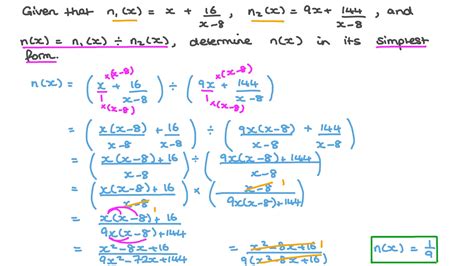 Given that n₁(x) = x + 16/(x-8), n₂(x) = 9x + 144/(x-8), and
n(x) = n₁(x) ÷ n₂(x), determine n(x) in its simplest
form.
n(x) = (x/1 ×(x-8) ×(x-8) + 16/(x-8)) ÷ (9x/1 ×(x-8) ×(x-8) + 144/(x-8))
= (x(x-8)/(x-8) + 16/(x-8)) ÷ (9x(x-8)/(x-8) + 144/(x-8))
= ((x(x-8)+16)/(x-8)) ÷ ((9x(x-8)+144)/(x-8))
= ((x(x-8)+16)/(x-8) 1) × ((x-8) 1/(9x(x-8)+144))
= (x(x-8)+16)/(9x(x-8)+144)
= (x²-8x+16)/(9x²-72x+144) = (x²-8x+16) 1/(9(x²-8x+16) 1)
n(x) = 1/9